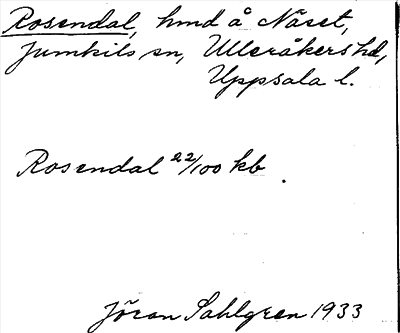 Rosendal, hmd å Näset,
Jumkils sn, Ulleråkers hd,
Uppsala l.
Rosendal 22/100 kb.
Jöran Sahlgren 1933